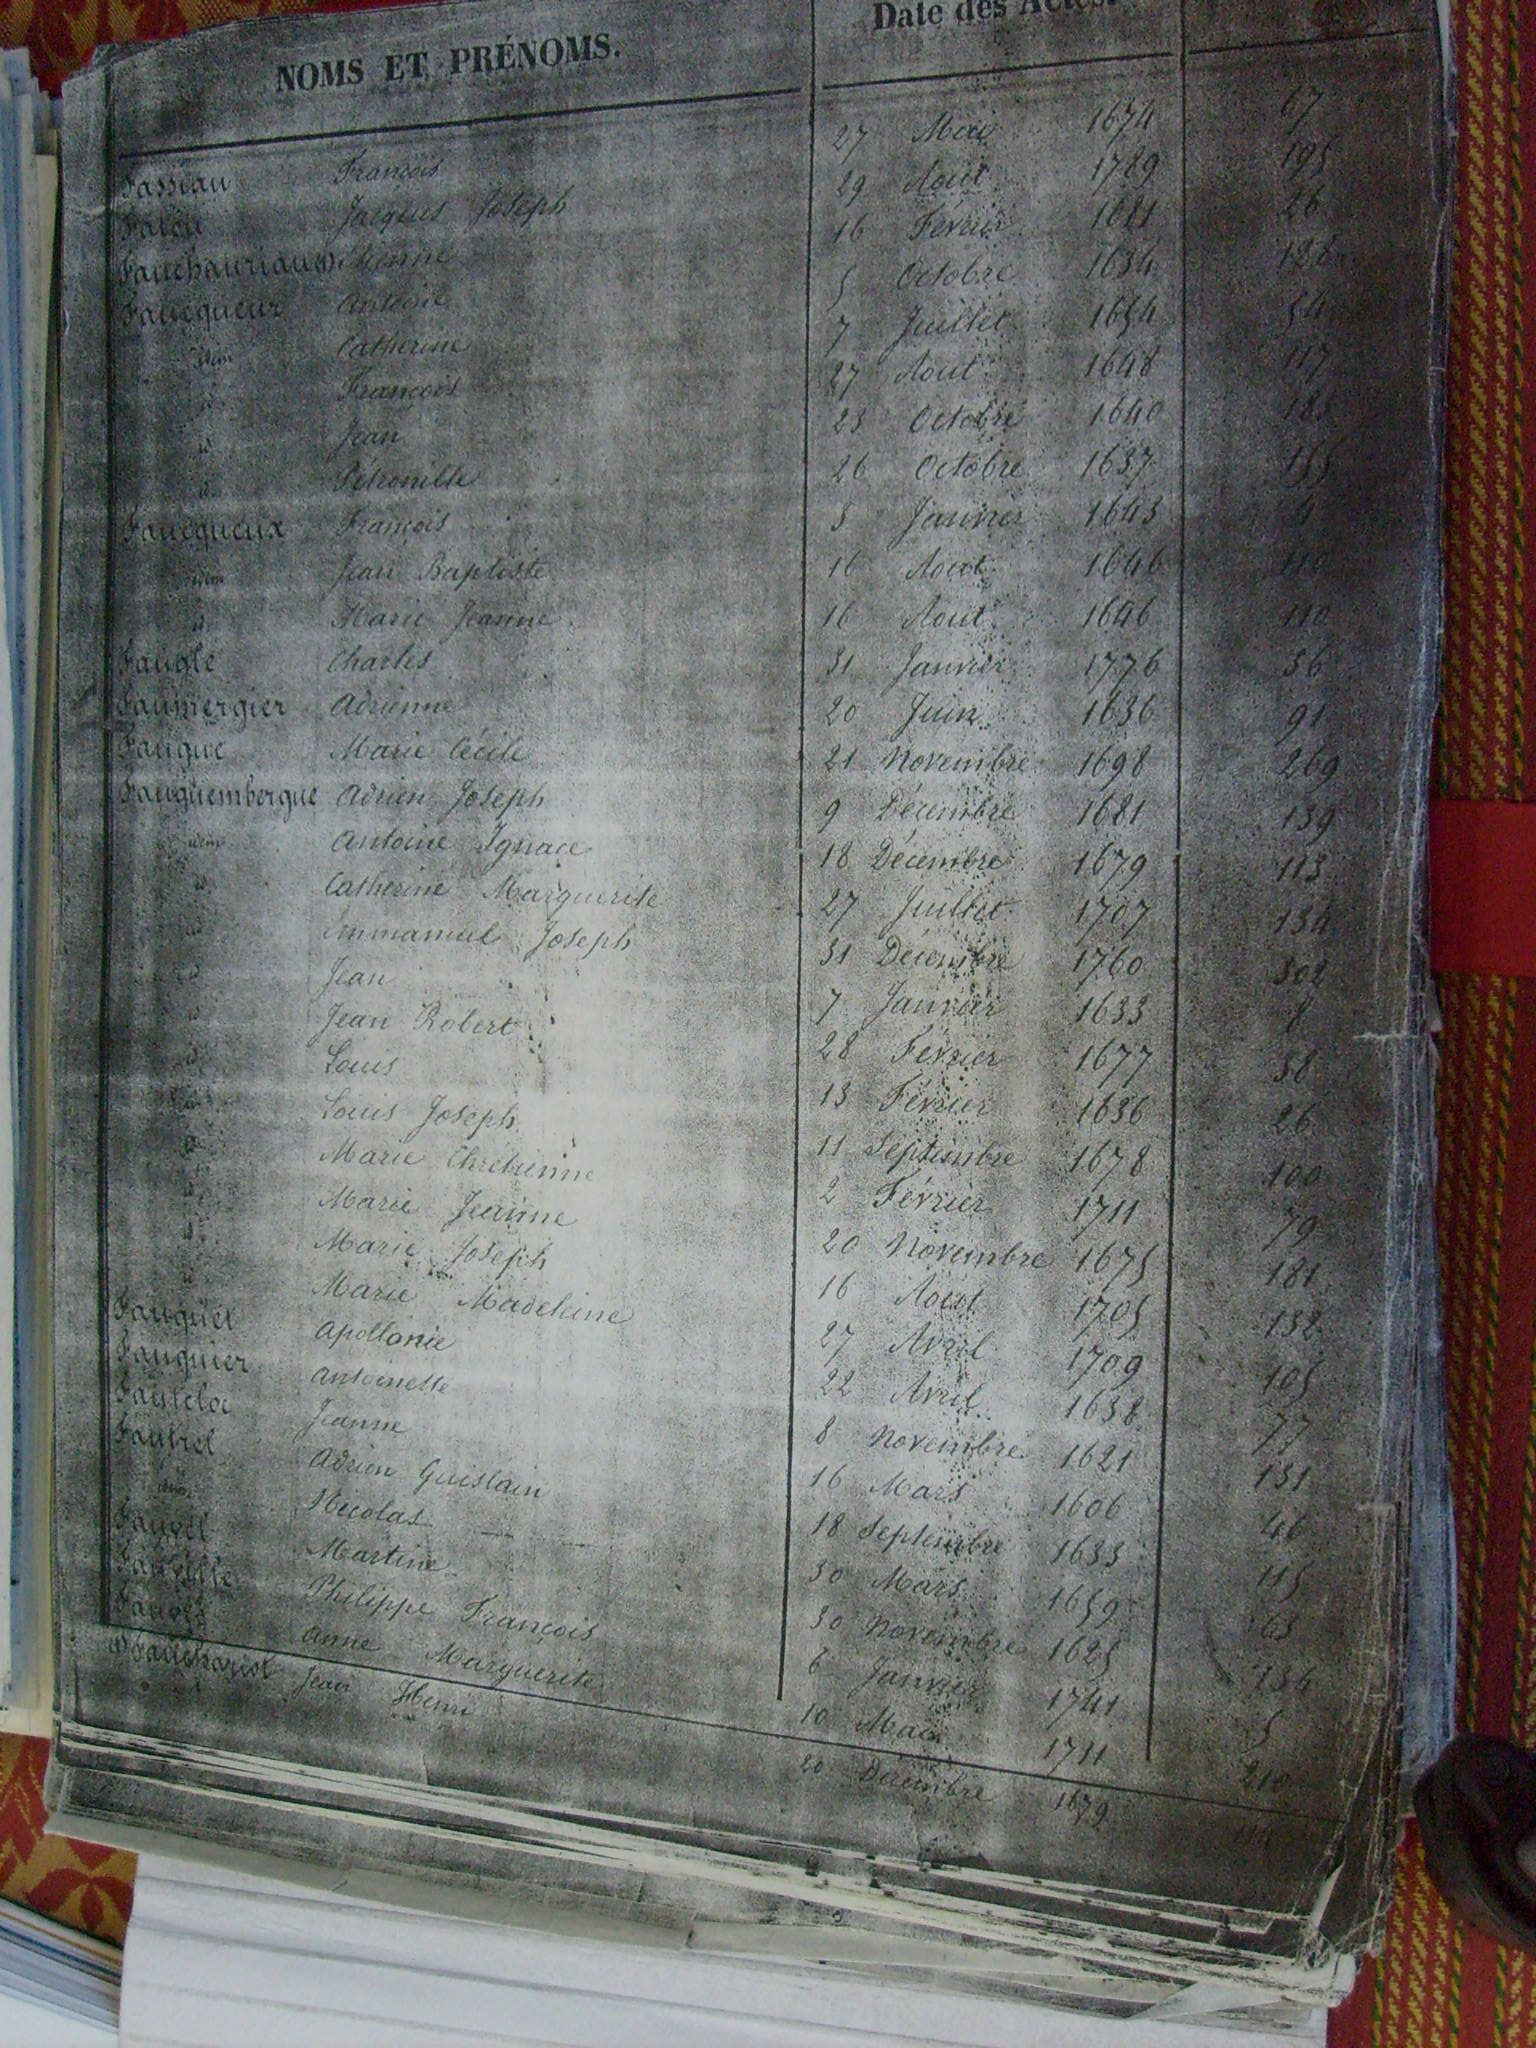 NOMS ET PRÉNOMS. Date des Actes.
Fassiau François 27 Mai 1674 67
Fatou Jacques Joseph 29 Aout 1789 195
Fauchauriau(1) Etienne 16 Février 1681 26
Faucqueur Antoine 5 Octobre 1634 128
idem Catherine 7 Juillet 1654 54
id François 27 Aout 1648 117
id Jean 23 Octobre 1640 185
id Pétronille 26 Octobre 1637 155
Faucqueux François 3 Janvier 1643 4
idem Jean Baptiste 16 Aout 1646 110
id Marie Jeanne 16 Aout 1646 110
Faugle Charles 31 Janvier 1776 36
Faumergier Adrienne 20 Juin 1636 91
Fauque Marie Cécile 21 Novembre 1698 269
Fauquembergue Adrien Joseph 9 Décembre 1681 139
idem Antoine Ignace 18 Décembre 1679 113
id Catherine Marguerite 27 Juillet 1707 134
id Emmanuel Joseph 31 Décembre 1760 302
id Jean 7 Janvier 1633 8
id Jean Robert 28 Février 1677 38
id Louis 13 Février 1636 26
id Louis Joseph 11 Septembre 1678 100
id Marie Chretienne 2 Février 1711 79
id Marie Jeanne 20 Novembre 1675 181
id Marie Joseph 16 Aout 1705 132
id Marie Madeleine 27 Avril 1709 105
Fauquet Apollonie 22 Avril 1638 77
Fauquier Antoinette 8 Novembre 1621 131
Fauteloc Jeanne 16 Mars 1606 46
Fautrel Adrien Guislain 18 Septembre 1633 115
idem Nicolas 30 Mars 1659 63
Fauvel Martine 30 Novembre 1625 136
Fauville Philippe François 6 Janvier 1741 5
Anne Marguerite 10 Mai 1711 210
(1) Fauchariot Jean Henri 20 Décembre 1679